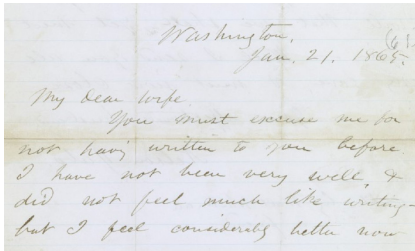 Washington.
Jan. 21. 1865.
My dear wife.
You must excuse me for
not having written to you before
I have not been very well, &
did not feel much like writing -
but I feel considerably better now